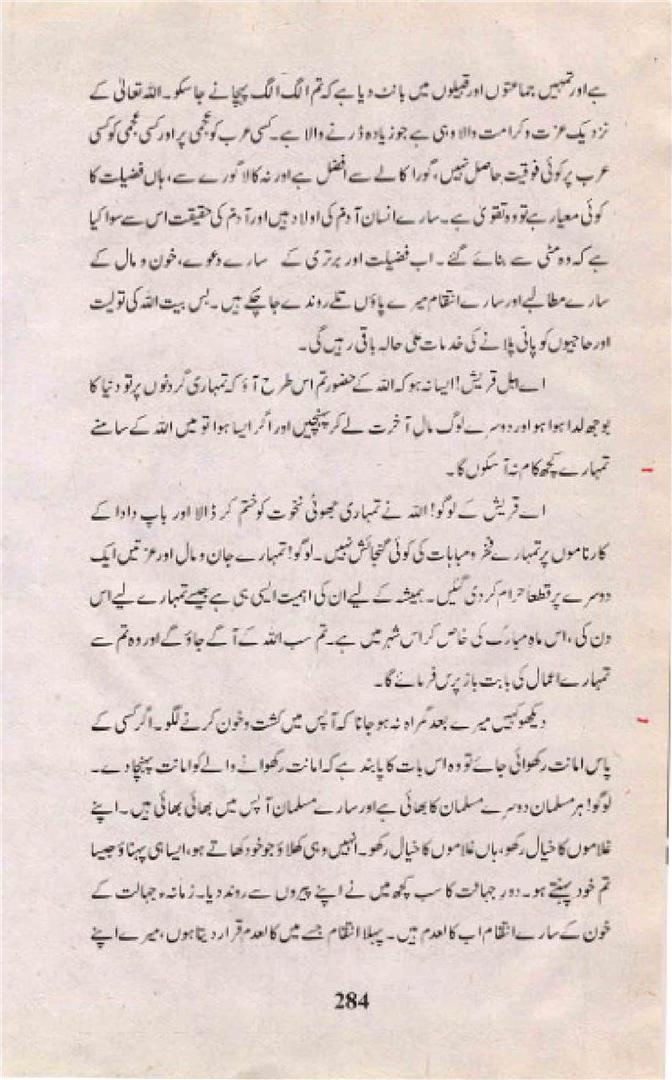 ہے اور تمہیں جماعتوں اور قبیلوں میں بانٹ دیا ہے کہ تم الگ الگ پہچانے جا سکو۔ اللہ تعالیٰ کے
نزدیک عزت و کرامت والا وہی ہے جو زیادہ ڈرنے والا ہے۔ کسی عرب کو عجمی پر اور کسی عجمی کو کسی
عرب پر کوئی فوقیت حاصل نہیں، گورا کالے سے افضل ہے اور نہ کالا گورے سے، ہاں فضیلت کا
کوئی معیار ہے تو وہ تقویٰ ہے۔ سارے انسان آدم کی اولاد ہیں اور آدم کی حقیقت اس سے سوا کیا
ہے کہ وہ مٹی سے بنائے گئے۔ اب فضیلت اور برتری کے سارے دعوے، خون و مال کے
سارے مطالبے اور سارے انتقام میرے پاؤں تلے روندے جا چکے ہیں۔ بس بیت اللہ کی تولیت
اور حاجیوں کو پانی پلانے کی خدمات علیٰ حالہ باقی رہیں گی۔
اے اہل قریش! ایسا نہ ہو کہ اللہ کے حضور تم اس طرح آؤ کہ تمہاری گردنوں پر تو دنیا کا
بوجھ لدا ہوا ہو اور دوسرے لوگ مال آخرت لے کر پہنچیں اور اگر ایسا ہوا تو میں اللہ کے سامنے
تمہارے کچھ کام نہ آ سکوں گا۔
اے قریش کے لوگو! اللہ نے تمہاری جھوٹی نخوت کو ختم کر ڈالا اور باپ دادا کے
کارناموں پر تمہارے فخر و مباہات کی کوئی گنجائش نہیں۔ لوگو! تمہارے جان و مال اور عزتیں ایک
دوسرے پر قطعاً حرام کر دی گئیں۔ ہمیشہ کے لیے ان کی اہمیت ایسی ہی ہے جیسے تمہارے لیے اس
دن کی، اس ماہ مبارک کی خاص کر اس شہر میں ہے۔ تم سب اللہ کے آگے جاؤ گے اور وہ تم سے
تمہارے اعمال کی بابت باز پرس فرمائے گا۔
دیکھو کہیں میرے بعد گمراہ نہ ہو جانا کہ آپس میں کشت و خون کرنے لگو۔ اگر کسی کے
پاس امانت رکھوائی جائے تو وہ اس بات کا پابند ہے کہ امانت رکھوانے والے کو امانت پہنچا دے۔
لوگو! ہر مسلمان دوسرے مسلمان کا بھائی ہے اور سارے مسلمان آپس میں بھائی بھائی ہیں۔ اپنے
غلاموں کا خیال رکھو، ہاں غلاموں کا خیال رکھو۔ انہیں وہی کھلاؤ جو خود کھاتے ہو، ایسا ہی پہناؤ جیسا
تم خود پہنتے ہو۔ دور جہالت کا سب کچھ میں نے اپنے پیروں سے روند دیا۔ زمانہء جہالت کے
خون کے سارے انتقام اب کالعدم ہیں۔ پہلا انتقام جسے میں کالعدم قرار دیتا ہوں، میرے اپنے
284